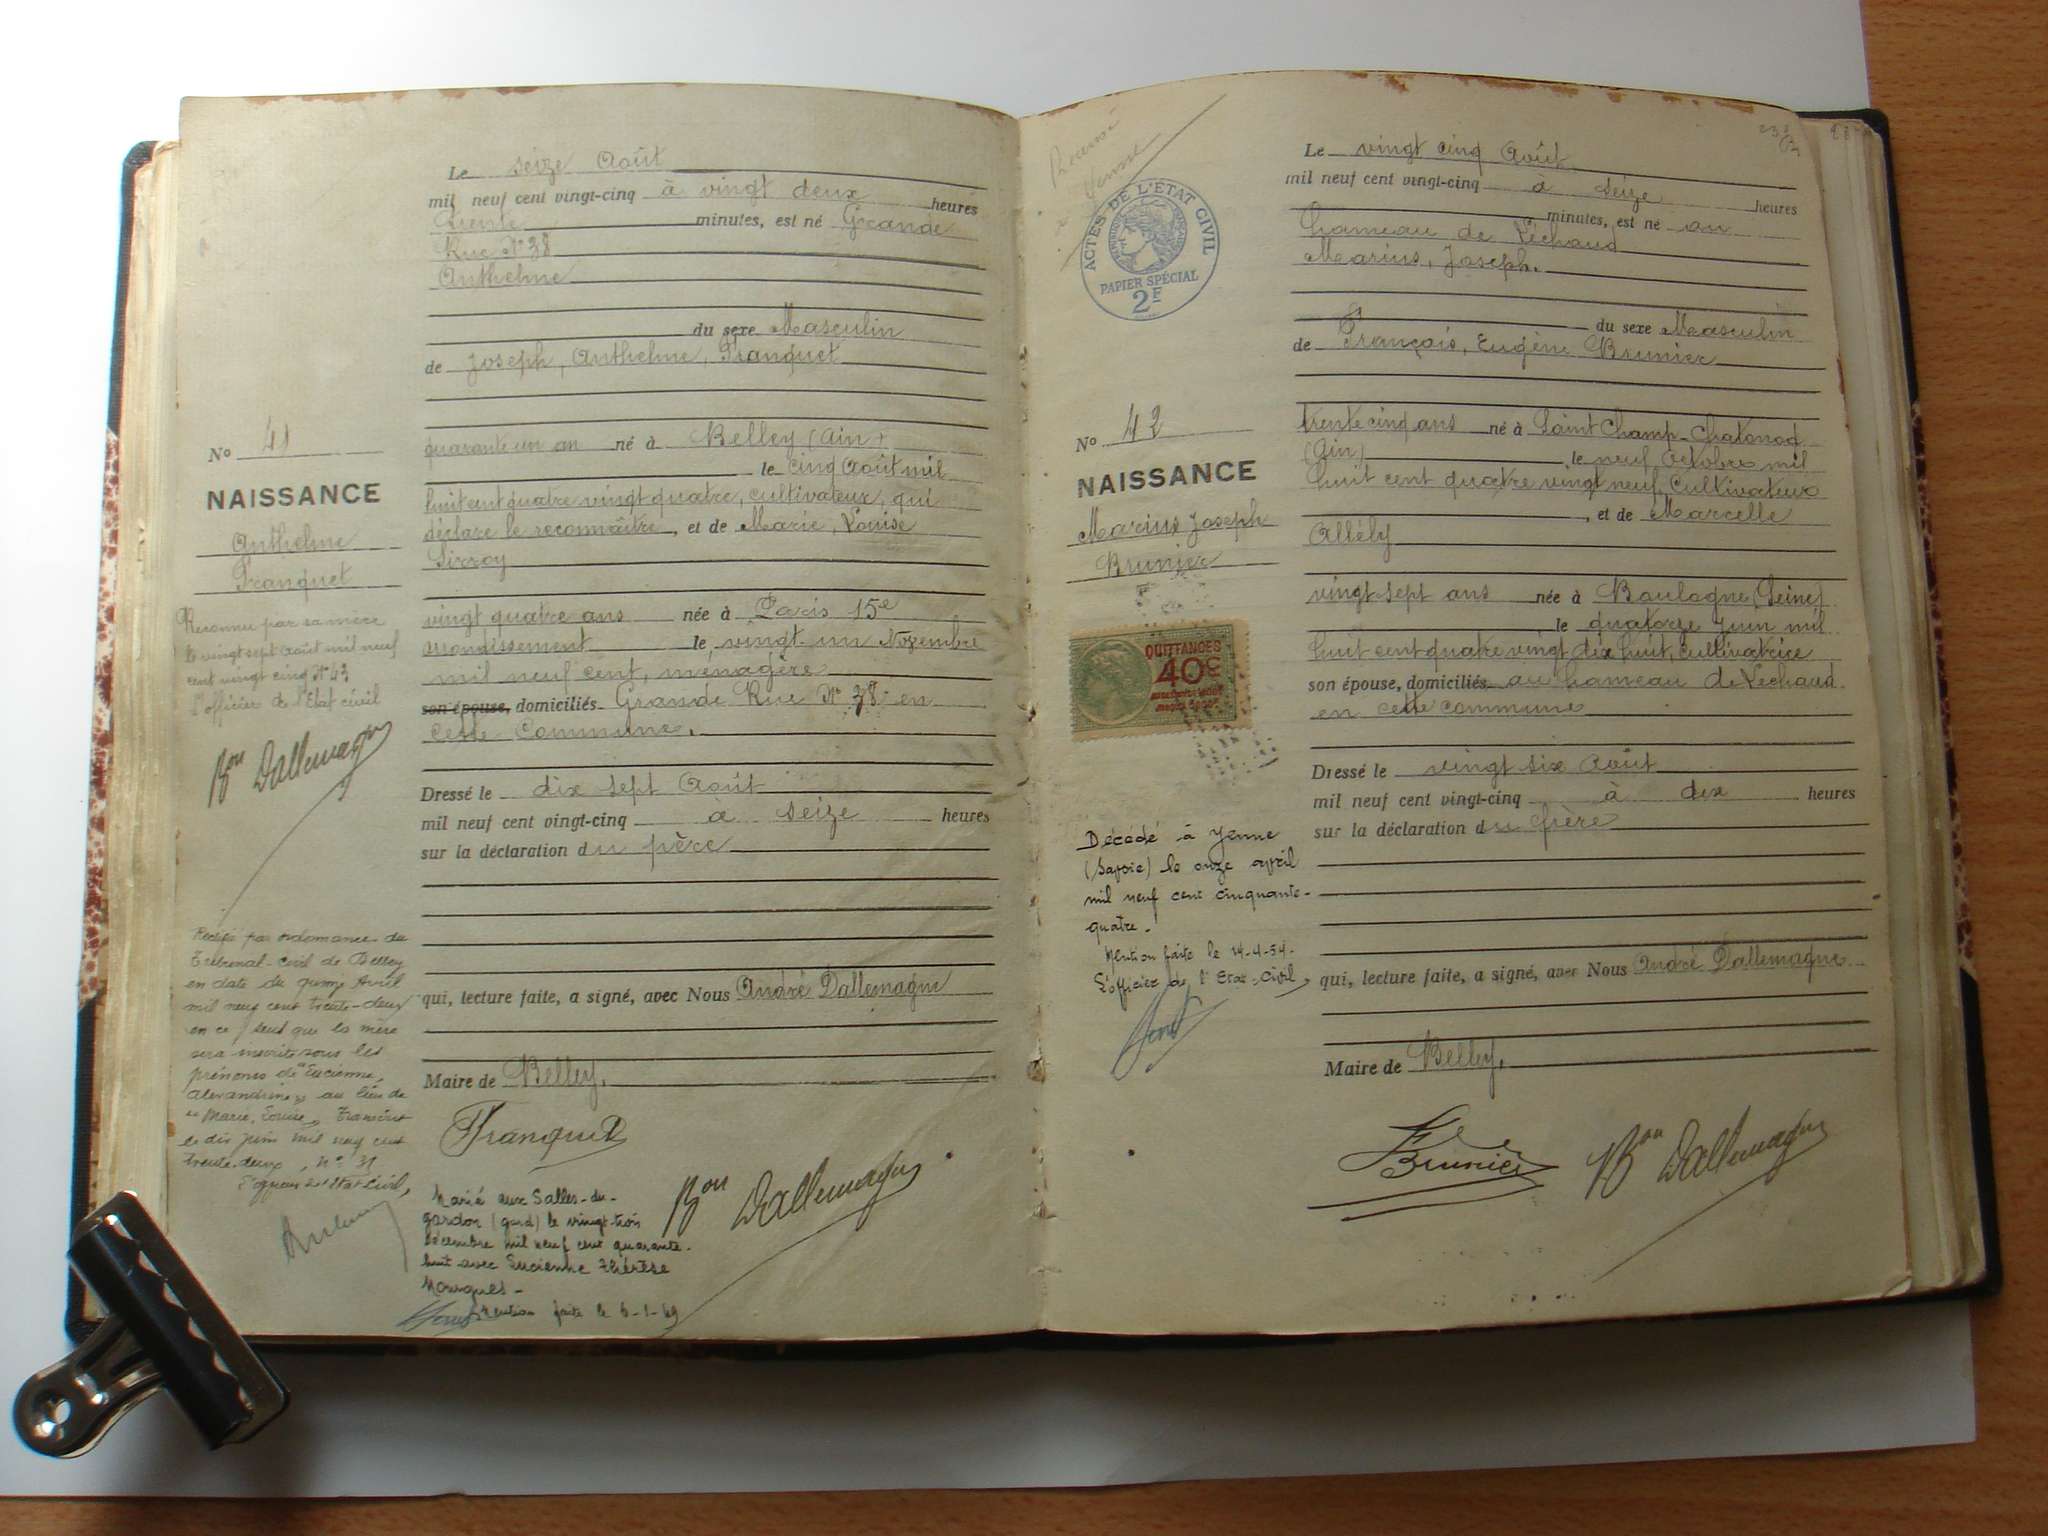 Le seize Août
mil neuf cent vingt-cinq à vingt deux heures
trente minutes, est né Grande
Rue N° 38
Anthelme
du sexe Masculin
de Joseph, Anthelme, Franquet
quarante un an né à Belley (Ain)
le cinq Août mil
huit cent quatre vingt quatre, cultivateur, qui
déclare le reconnaître, et de Marie, Louise
Sirroy
vingt quatre ans née à Paris 15e
arrondissement le vingt-un Novembre
mil neuf cent, ménagère
son épouse, domiciliés Grande Rue N° 38 en
cette commune.
Dressé le dix sept Août
mil neuf cent vingt-cinq à seize heures
sur la déclaration du père
qui, lecture faite, a signé, avec Nous André Dallemagne
Maire de Belley.
Franquet
Bon Dallemagne
Marié aux Salles-du-
gardon (gard) le vingt-trois
décembre mil neuf cent quarante-
huit avec Lucienne Thérèse
Mourgues-
Mention faite le 6-1-49
No 41
NAISSANCE
Anthelme
Franquet
Reconnu par sa mère
le vingt sept Août mil neuf
cent vingt cinq N° 43
l'officier de l'Etat civil
Bon Dallemagne
Rectifié par ordonnance du
Tribunal civil de Belley
en date du quinze Avril
mil neuf cent trente-deux
en ce sens que la mère
sera inscrite sous les
prénoms de "Lucienne
Alexandrine" au lieu de
"Marie, Louise" Transcrit
le dix juin mil neuf cent
trente-deux, N° 31
l'officier de l'Etat Civil,
ACTES DE L'ÉTAT CIVIL
PAPIER SPÉCIAL
2F
Le vingt cinq Août
mil neuf cent vingt-cinq à seize heures
minutes, est né au
hameau de Léchaud
Marius, Joseph.
du sexe Masculin
de François, Eugène Brunier
trente cinq ans né à Saint Champ-Chatonod
(Ain) le neuf Octobre mil
huit cent quatre vingt neuf, Cultivateur
, et de Marcelle
Allély
vingt sept ans née à Boulogne (Seine)
le quatorze Juin mil
huit cent quatre vingt dix huit, Cultivatrice
son épouse, domiciliés au hameau de Léchaud
en cette commune
Dressé le vingt six Août
mil neuf cent vingt-cinq à dix heures
sur la déclaration du père
qui, lecture faite, a signé, avec Nous André Dallemagne
Maire de Belley.
Brunier
Bon Dallemagne
No 42
NAISSANCE
Marius Joseph
Brunier
QUITTANCES
40c
Décédé à Yenne
(Savoie) le onze avril
mil neuf cent cinquante-
quatre.
Mention faite le 14-4-54-
L'officier de l'Etat-Civil,